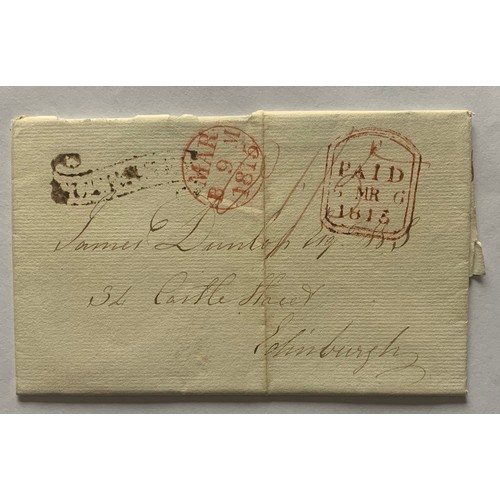 MAR
B 9 M
1815
PAID
6 MR 6
1815
James Dunlop Esq
Castle Street
Edinburgh